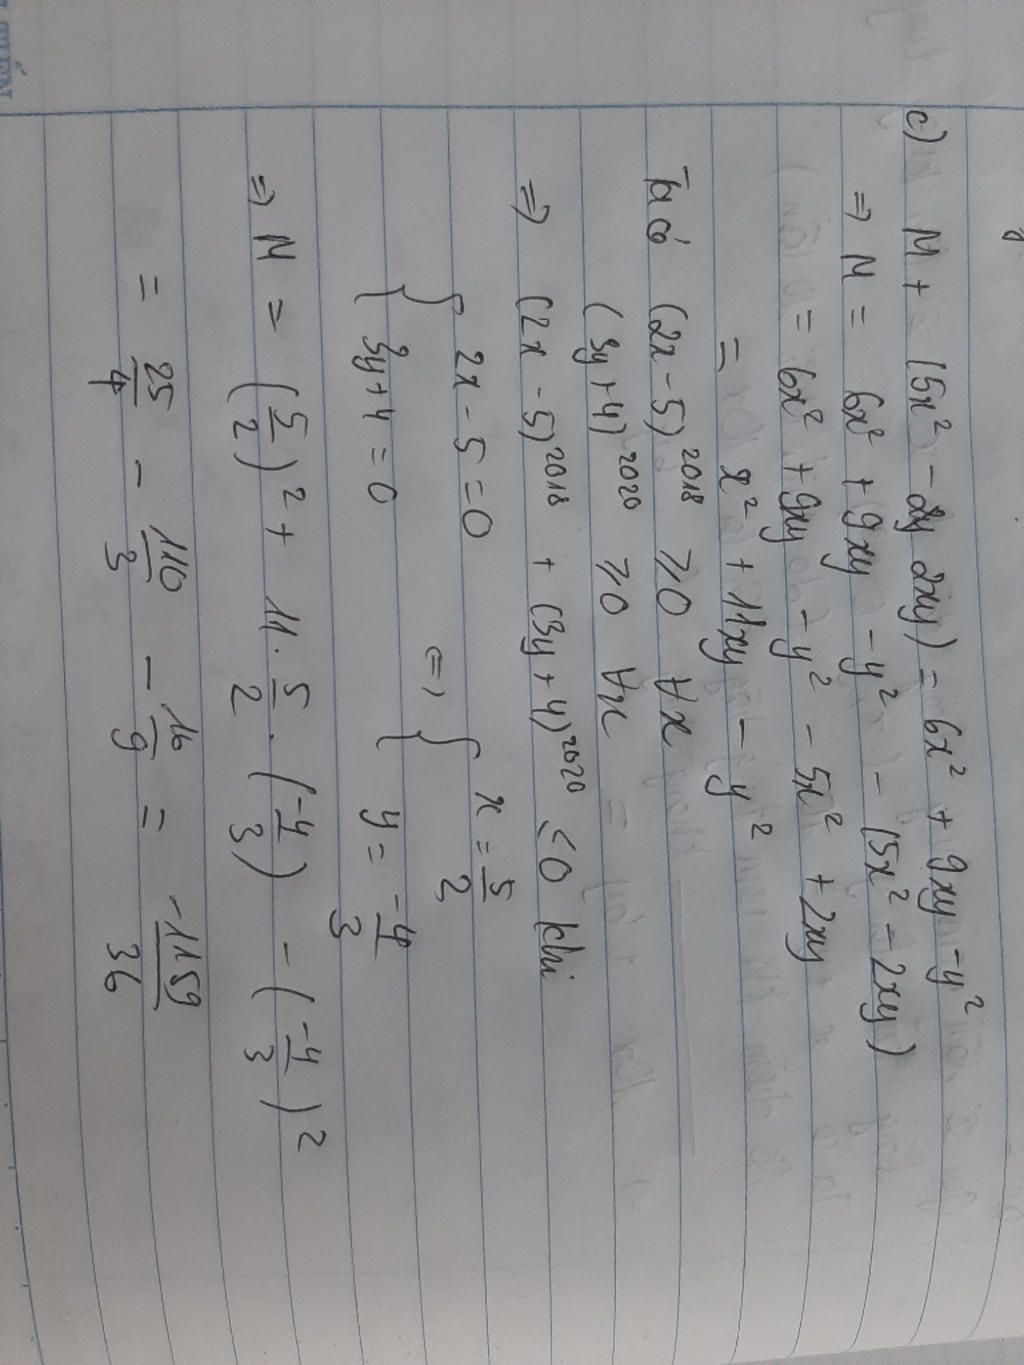 c) M + (5x² - 2xy) = 6x² + 9xy - y²
=> M = 6x² + 9xy - y² - (5x² - 2xy)
= 6x² + 9xy - y² - 5x² + 2xy
= x² + 11xy - y²
Ta có (2x - 5)²⁰¹⁸ ≥ 0 ∀x
(3y + 4)²⁰²⁰ ≥ 0 ∀x
=> (2x - 5)²⁰¹⁸ + (3y + 4)²⁰²⁰ ≤ 0 khi
{ 2x - 5 = 0 <=> { x = 5/2
{ 3y + 4 = 0 { y = -4/3
=> M = (5/2)² + 11 . 5/2 . (-4/3) - (-4/3)²
= 25/4 - 110/3 - 16/9 = -1159/36